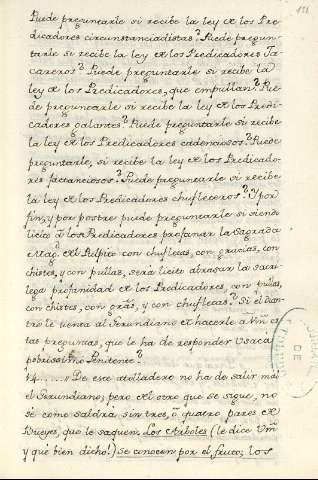 121
Puede preguntarle si recibe la ley de los Pre
dicadores circunstanciadistas? Puede pregun-
tarle si recibe la ley de los Predicadores Ja
careros? Puede preguntarle si recibe la
ley de los Predicadores, que empullan? Pue
de preguntarle si recibe la ley de los Predi-
cadores galantes? Puede preguntarle si recibe
la ley de los Predicadores cadenciosos? Puede
preguntarle, si recibe la ley de los Predicado-
res jactanciosos? Puede preguntarle si recibe
la ley de los Predicadores chufleteros? Y por
fin, y por postre puede preguntarle si siendo
licito â los Predicadores profanar la Sagrada
Mag.d del Pulpito con chufletas, con gracias, con
chistes, y con pullas, será licito abrasar la sacri-
lega profanidad de los Predicadores, con pullas,
con chistes, con gras, y con chufletas? Si el dian
tre le tienta al Gerundiano de hacerle a Vm es
tas preguntas, que le ha de responder Usaca
pobrissimo Penitente?
14......,, De este atolladero no ha de salir mal
el Gerundiano; pero del otro que se sigue, no
sè como saldrá, sin tres, ô quatro pares de
Bueyes, que le saquen. Los Arboles (le dice Vm
y què bien dicho!) se conocen por el fruto; los